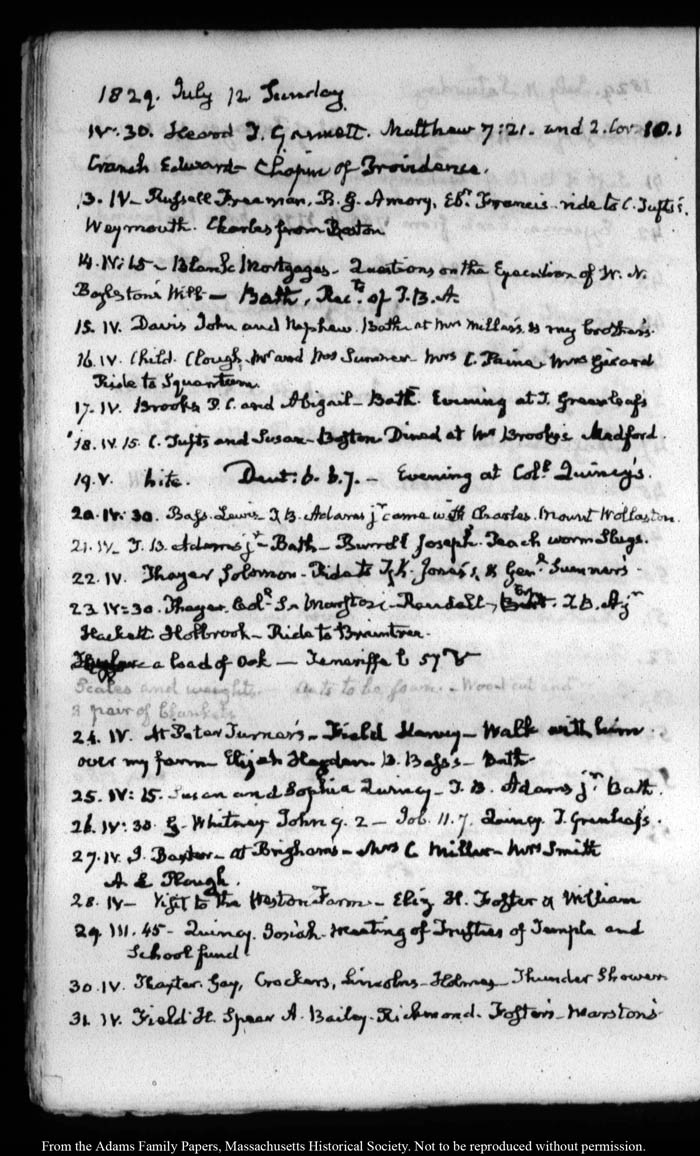 1829. July 12. Sunday
IV.30. Heard T. Gannett. Matthew 7:21. and 2. Cor 10.1
Cranch Edward Chapin of Providence.
13. IV— Russell Freeman, R. G. Amory, Ebr. Francis. ride to C. Tufts's.
Weymouth. Charles from Boston
14. IV:15— Blank Mortgages— Questions on the Execution of W. N.
Boylston's Will— Bath, Rects. of T.B.A.
15. IV. Davis John and Nephew. Bath at Mrs Miller's, & my brother's.
16. IV. Child. Clough, Mr and Mrs Sumner Mrs C. Paine, Mrs Girard
Ride to Squantum.
17. IV. Brooks P. C. and Abigail— Bath. Evening at T. Greenleaf's
18. IV. 15. C. Tufts and Susan— Boston Dined at Mr Brooks's Medford.
19. V. Deut: 6. 6.7.— Evening at Coll. Quincy's.
20. IV: 30. Bass. Lewis— T. B. Adams jr came with Charles. Mount Wollaston.
21. IV— T. B. Adams jr— Bath— Burrell Joseph. Peach worm Slugs.
22. IV. Thayer Solomon— Ride to T. K. Jones's, & Genl. Sumner's
23. IV:30. Thayer. Marston— Randall, T. B. A jr
Hackett Holbrook— Ride to Braintree.
a load of Oak — Teneriffe
Scales and weights.— Wood cut and
a pair of blankets
24. IV. At Peter Turner's— Field Harvey— Walk with him
over my farm Elijah Hayden. Bass's— Bath
25. IV: 15. Susan and Sophia Quincy— T. B. Adams jr Bath.
26. IV: 30. G. Whitney John 9. 2— Job. 11. 7. Quincy. T. Greenleaf's.
27. IV. I. Baxter— at Brighams— Mrs C Miller— Mrs Smith
A & Plough.
28. IV— Visit to the Weston Farm— Eliz H. Foster & William
29 III. 45— Quincy. Josiah— Meeting of Trustees of Temple and
School fund
30. IV. Thaxter. Gay, Crockers, Lincolns— Holmes— Thunder Shower
31. IV. Field H. Spear A. Bailey. Richmond. Foster's— Marston's
From the Adams Family Papers, Massachusetts Historical Society. Not to be reproduced without permission.